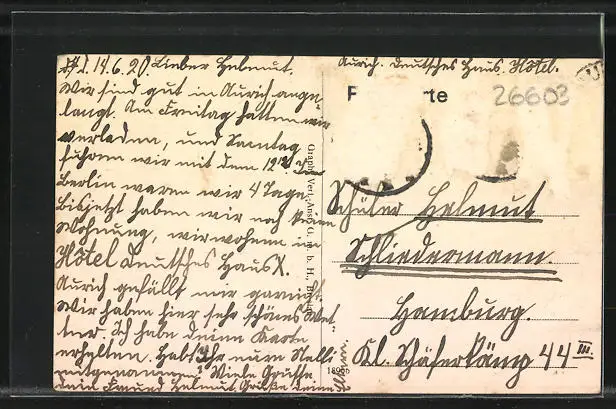 d. 14.6.20. Lieber Helmut.
Wir sind gut in Aurich ange-
langt. Am Freitag hatten wir
verladen, und Sonntag
fuhren wir mit dem 12
Berlin waren wir 4 Tage
Bis jetzt haben wir noch kein
Wohnung, wir wohnen im
Hôtel deutsches Haus.
Aurich gefällt mir garnicht.
Wir haben hier sehr schönes Wet-
ter. Ich habe deine Karte
erhalten. Habt ihr eure
mitgenommen? Viele Grüsse
dein Freund Helmut. Grüße deine
Aurich. deutsches Haus. Hôtel.
P rte
26603
Graph. Verl.-Anst. G. m. b. H.,
18966
Schüler Helmut
Schliedermann.
Hamburg.
Kl. Schäferkamp 44 III.